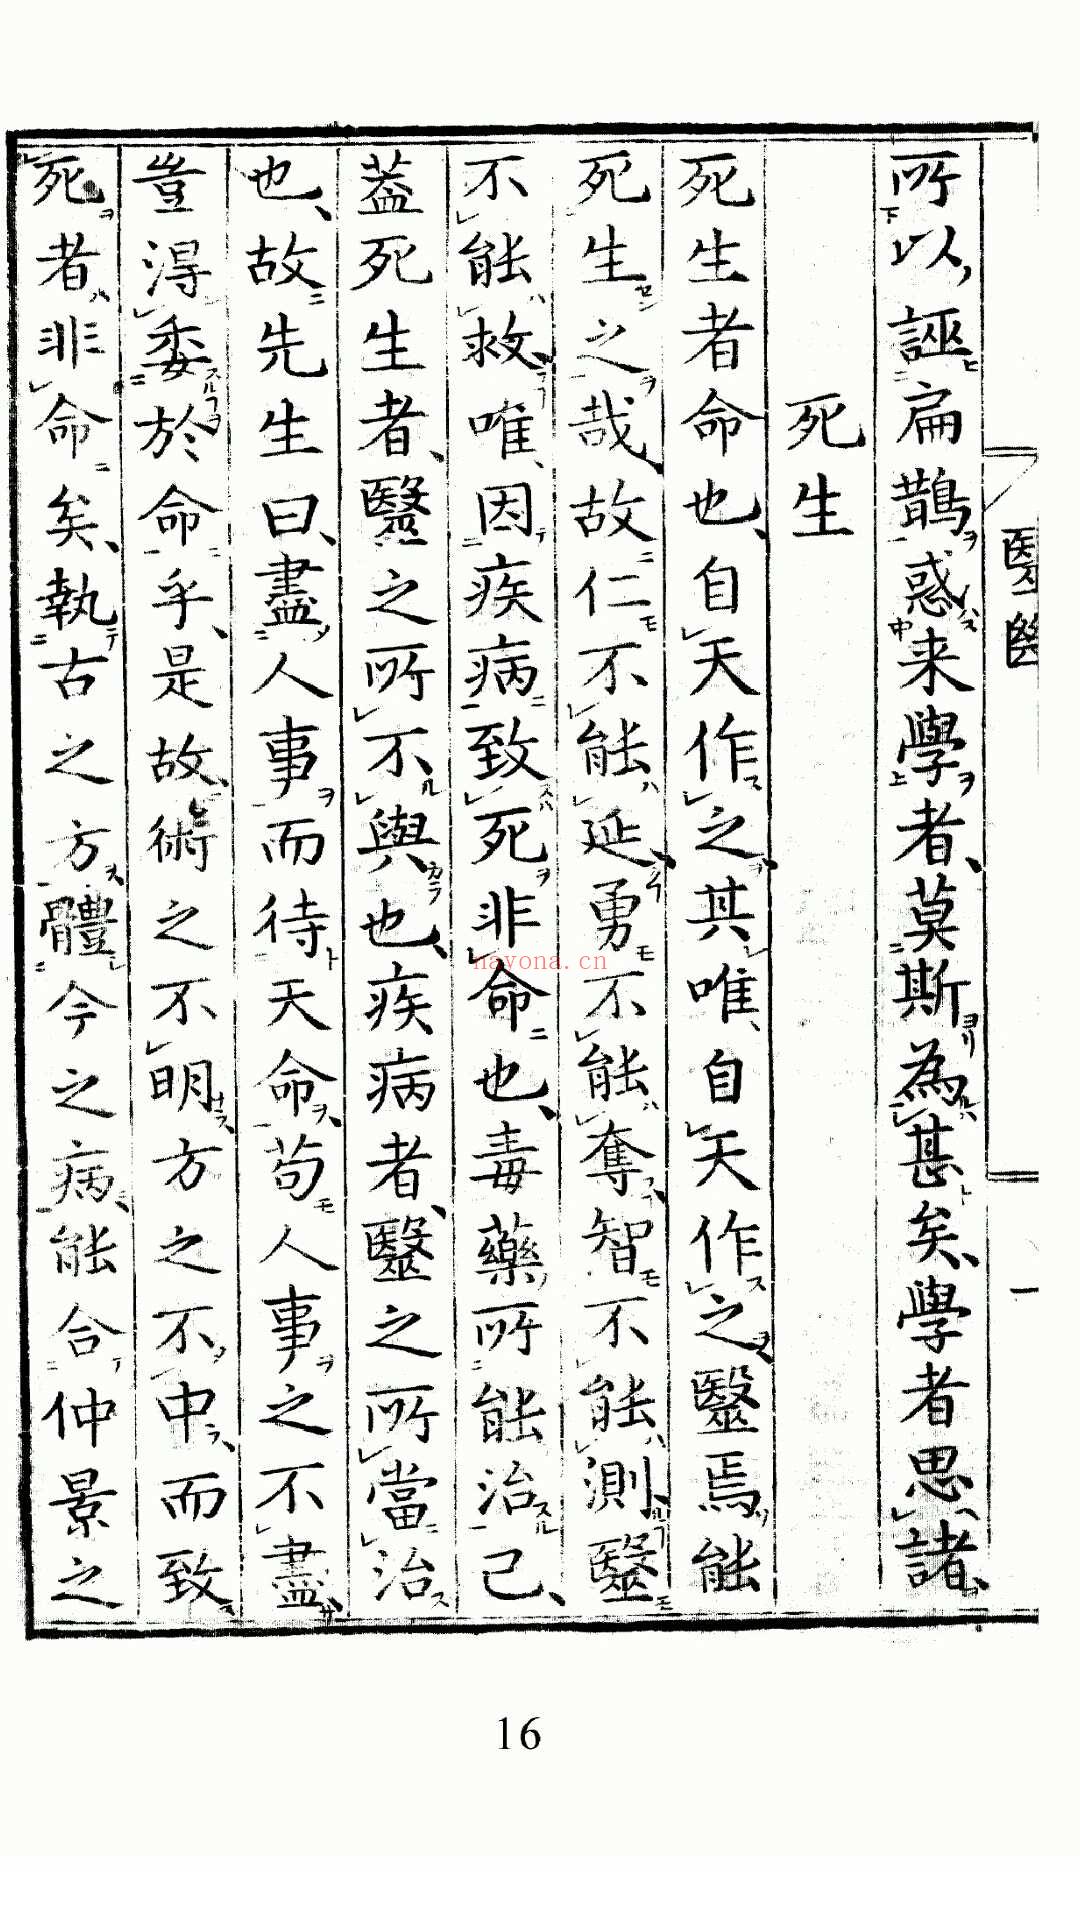 所以誣扁鵲惑来學者莫斯為甚矣學者思諸
死生
死生者命也自天作之其唯自天作之醫焉能
死生之哉故仁不能延勇不能奪智不能測醫
不能救唯因疾病致死非命也毒藥所能治已
蓋死生者醫之所不與也疾病者醫之所當治
也故先生曰盡人事而待天命苟人事之不盡
豈得委於命乎是故術之不明方之不中而致
死者非命矣執古之方體今之病能合仲景之
醫斷
一
nayona.cn
16